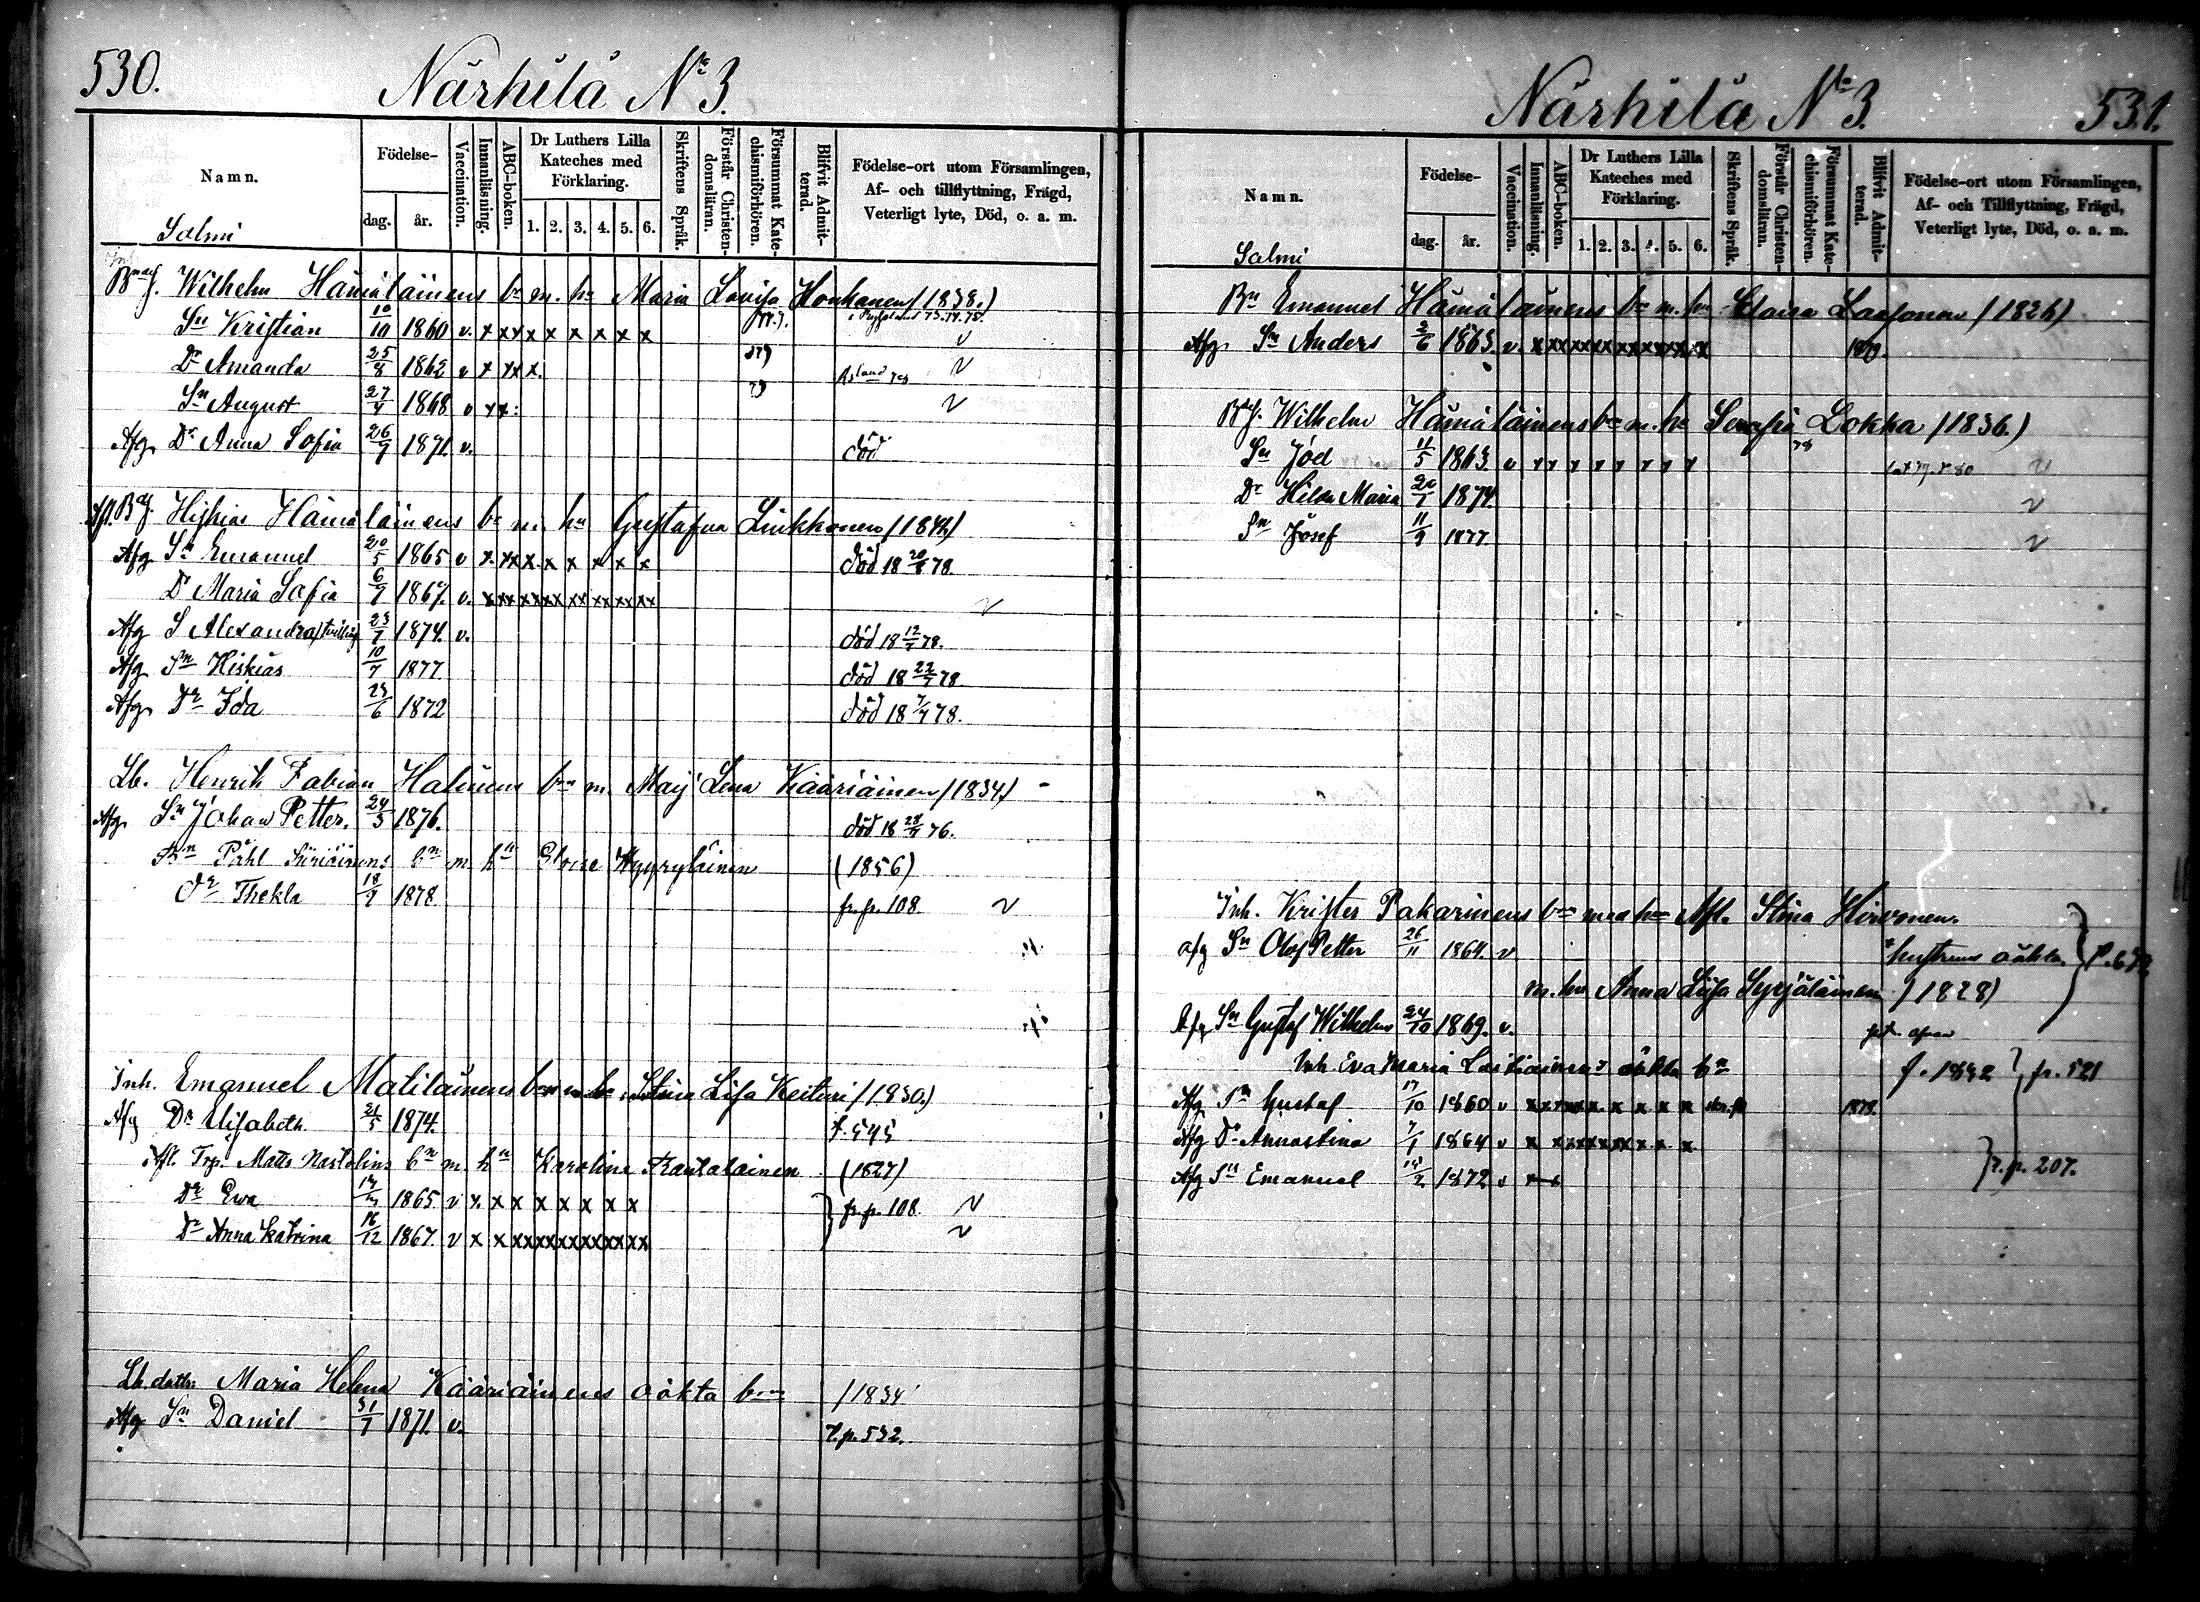 530.
Närhilä No 3.
Namn.
Födelse-
dag.
år.
Vaccination.
Innanläsning.
ABC-boken.
Dr Luthers Lilla Kateches med Förklaring.
1. 2. 3. 4. 5. 6.
Skriftens Språk.
Förstår Christendomsläran.
Försummat Katechismiförhören.
Blifvit Admitterad.
Födelse-ort utom Församlingen, Af- och tillflyttning, Frägd, Veterligt lyte, Död, o. a. m.
Salmi
Wilhelm Hämäläinens bn m. hu Maria Lovisa Honkanen (1838.)
Sn Kristian 10/10 1860 v. x x x x x x x x x
Dr Amanda 25/8 1862 v x x x x
Sn August 27/4 1868 v x x
Afg. Dr Anna Sofia 26/9 1871 v. död
Hiskias Hämäläinens bn m. hu Gustafva Linkkonen (1842)
Afg Sn Emanuel 20/5 1865 v x x x x x x x x x död 18 20/8 78.
Dr Maria Sofia 6/9 1867. v. x x x x x x x x x x x x
Afg S Alexandra, tvilling 23/7 1874. v. död 18 12/7 78.
Afg Sn Hiskias 10/7 1877 död 18 22/7 78
Afg. Dr Ida 29/6 1872 död 18 7/7 78.
Lb. Henrik Fabian Halinens bn m. Maij Lena Kääriäinen (1834)
Afg. Sn Johan Petter. 24/5 1876. död 18 28/7 76.
Påhl bn m hu (1856)
Dr Thekla 18/9 1878 fr. p. 108.
Inh. Emanuel Matiläinens bn m hu Stina Lisa Keituri (1830.)
Afg Dr Elisabeth 21/5 1874. f. 545
Afl. Trp. Matts bn m. hn Karoline Rautalainen (1827)
Dr Ewa 1865 v x x x x x x x x
Dr Anna Katrina 16/12 1867. v x x x x x x x x x x x x fr. p. 108
Lb. dottr: Maria Helena Kääriäinens oäkta bn (1834
Afg Sn Daniel 31/7 1871. v. T. p. 532.
Närhilä No 3.
531.
Namn.
Födelse-
dag.
år.
Vaccination.
Innanläsning.
ABC-boken.
Dr Luthers Lilla Kateches med Förklaring.
1. 2. 3. 4. 5. 6.
Skriftens Språk.
Förstår Christendomsläran.
Försummat Katechismiförhören.
Blifvit Admitterad.
Födelse-ort utom Församlingen, Af- och Tillflyttning, Frägd, Veterligt lyte, Död, o. a. m.
Salmi
Bn Emanuel Hämäläinens bn m. hu Laasonen (1826)
Afg. Sn Anders 2/6 1863. v. x x x x x x x x x x x x
Wilhelm Hämäläinens bn m. hu Serafia Lokka (1836.)
Sn Joel 11/5 1863 v x x x x x x x x
Dr Hilda Maria 20/1 1874.
Sn Josef 11/9 1877.
Inh. Krister Pakarinens bn med hu Afl. Stina Hirvonen.
afg Sn Olof Petter 26/11 1864. v hustruns oäkta
m. hu Anna Lisa Syrjäläinen (1828)
Afg Sn Gustaf Wilhelm 24/10 1869. v.
Inh Eva Maria oäkta bn f. 1832 fr. 521
Afg Sn Gustaf 17/10 1860 v x x x x x x x x x
Afg Dr Annastina 7/1 1864 v x x x x x x x x x x
Afg Sn Emanuel 1872 v x x T. p. 207.